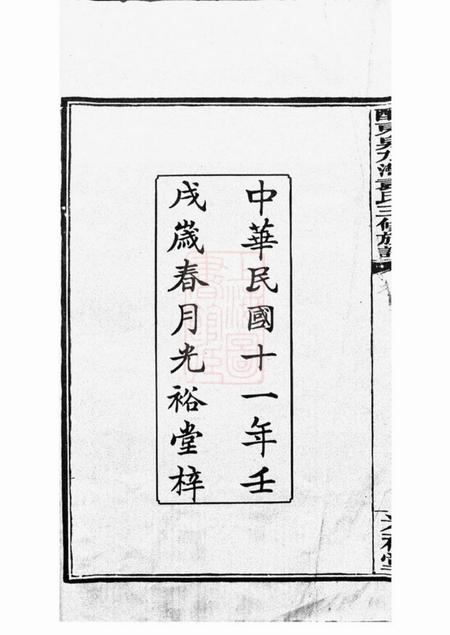 中華民國十一年壬
戌嵗春月光裕堂梓